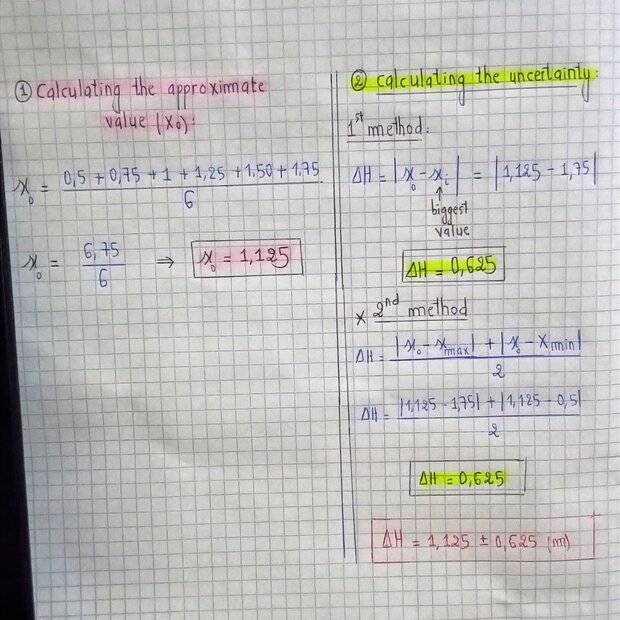 ① Calculating the approximate
value (X₀):
x₀ = (0,5 + 0,75 + 1 + 1,25 + 1,50 + 1,75) / 6
x₀ = 6,75 / 6 ⇒ x₀ = 1,125
② calculating the uncertainty:
1st method:
ΔH = |x₀ - xᵢ| = |1,125 - 1,75|
↑
biggest
value
ΔH = 0,625
× 2nd method
ΔH = (|x₀ - xmax| + |x₀ - Xmin|) / 2
ΔH = (|1,125 - 1,75| + |1,125 - 0,5|) / 2
ΔH = 0,625
ΔH = 1,125 ± 0,625 (m)